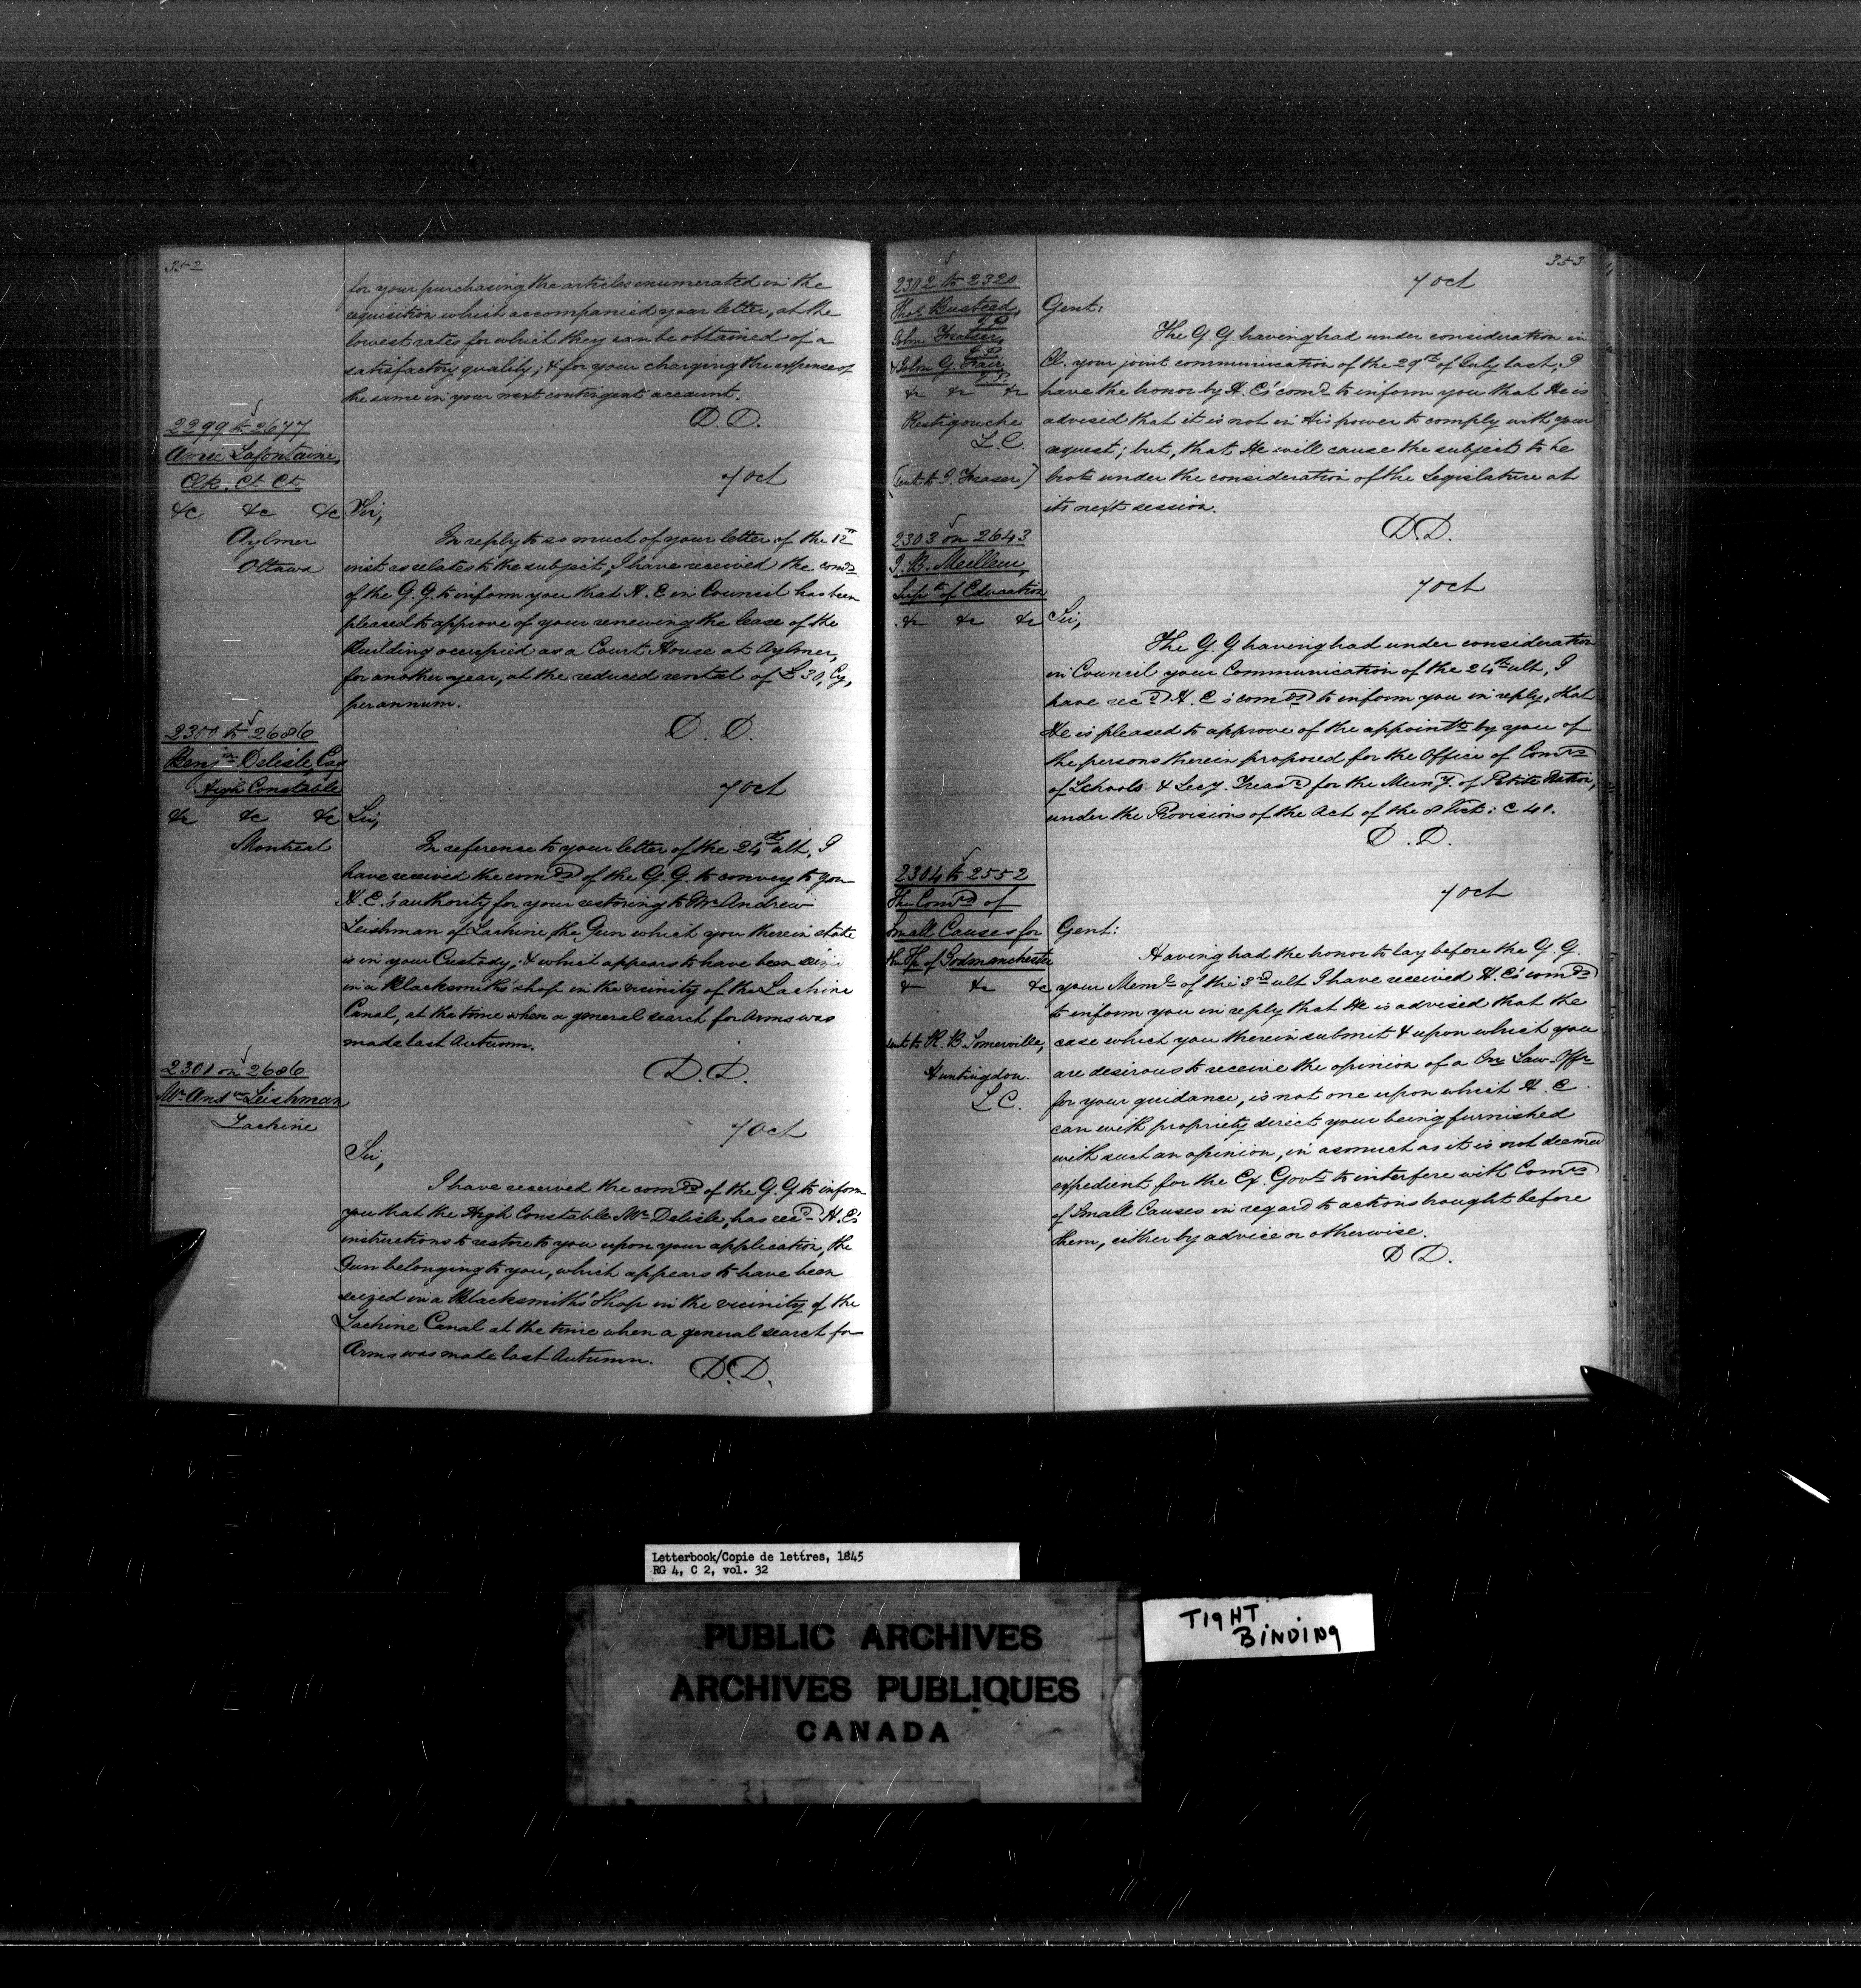 352
for your purchasing the articles enumerated in the
requisition which accompanied your letter, at the
lowest rates for which they can be obtained of a
satisfactory quality; & for your charging the expense of
the same in your next contingent account.
D. D.
2299 to 2677
Lafontaine,
Clk. Ct. Ct.
&c &c &c
Aylmer
Ottawa
7 Oct
Sir,
In reply to so much of your letter of the 12th
inst as relates to the subject, I have received the comds
of the G. G. to inform you that H. E in Council has been
pleased to approve of your renewing the lease of the
Building occupied as a Court House at Aylmer,
for another year, at the reduced rental of £30, Cy,
per annum.
D. D.
2300 to 2686
Benjn Delisle, Esq
High Constable
&c &c &c
Montreal
7 Oct
Sir,
In reference to your letter of the 24th ult, I
have received the comds of the G. G. to convey to you
H. E.'s authority for your restoring to Mr Andrew
Leishman of Lachine, the Gun which you therein state
is in your Custody, & which appears to have been
in a Blacksmiths' shop in the vicinity of the Lachine
Canal, at the time when a general search for Arms was
made last Autumn.
D. D.
2301 on 2686
Mr Andw Leishman
Lachine
7 Oct
Sir,
I have received the comds of the G. G to inform
you that the High Constable Mr Delisle, has recd H. E's
instructions to restore to you upon your application, the
Gun belonging to you, which appears to have been
seized in a Blacksmiths' Shop in the vicinity of the
Lachine Canal at the time when a general search for
Arms was made last Autumn.
D. D.
353
2302 to 2320
Thos Busteed,
J. P
John Fraser,
J. P
& John G.
J. P.
&c &c &c
Restigouche
L. C.
(sent to J. Fraser)
7 Oct
Gent:
The G. G having had under consideration in
Cl. your joint communication of the 29th of July last, I
have the honor by H. E's comd to inform you that He is
advised that it is not in His power to comply with your
request; but, that He will cause the subject to be
brot under the consideration of the Legislature at
its next session.
D. D.
2303 on 2643
J. B. Meilleur,
Supt of Education
&c &c &c
7 Oct
Sir,
The G. G having had under consideration
in Council your Communication of the 24th ult, I
have recd H. E's comds to inform you in reply, that
He is pleased to approve of the appointt by you of
the persons therein proposed for the Office of Comrs
of Schools & Secy. Treasr for the Muny. of Petite Nation,
under the Provisions of the Act of the 8 Vict: c 40.
D. D.
2304 to 2552
The Comrs of
Small Causes for
the Tp of Godmanchester
&c &c &c
sent to R. B. Somerville,
Huntingdon.
L. C.
7 Oct
Gent:
Having had the honor to lay before the G. G.
your Meml of the 3rd ult I have received H. E's comds
to inform you in reply that He is advised that the
case which you therein submit & upon which you
are desirous to receive the opinion of a Crn Law-Offr
for your guidance, is not one upon which H. E.
can with propriety direct your being furnished
with such an opinion, in asmuch as it is not deemed
expedient for the Ex. Govt to interfere with Comrs
of Small Causes in regard to actions brought before
them, either by advice or otherwise.
D D.
Letterbook/Copie de lettres, 1845
RG 4, C 2, vol. 32
PUBLIC ARCHIVES
ARCHIVES PUBLIQUES
CANADA
TIGHT
BINDING